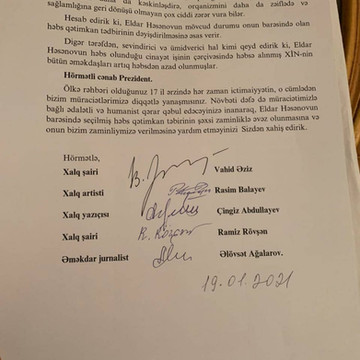 da kəskinləşdirə, orqanizmini daha da zəiflədə və
sağlamlığına geri dönüşü olmayan çox ciddi zərər vura bilər.
Hesab edirik ki, Eldar Həsənovun mövcud durumu onun barəsində olan
həbs qətimkan tədbirinin dəyişdirilməsinə əsas verir.
Digər tərəfdən, sevindirici və ümidverici hal kimi qeyd edirik ki, Eldar
Həsənovun həbs olunduğu cinayət işinin çərçivəsində həbsə alınmış XİN-nin
bütün əməkdaşları artıq həbsdən azad olunmuşlar.
Hörmətli cənab Prezident.
Ölkə rəhbəri olduğunuz 17 il ərzində hər zaman ictimaiyyətin, o cümlədən
bizim müraciətlərimizə diqqətlə yanaşmısınız. Növbəti dəfə də müraciətimizlə
bağlı ədalətli və humanist qərar qəbul edəcəyinizə inanaraq, Eldar Həsənovun
barəsində seçilmiş həbs qətimkan təbirinin şəxsi zaminliklə əvəz olunmasına və
onun bizim zaminliymizə verilməsinə yardım etməyinizi Sizdən xahiş edirik.
Hörmətlə,
Xalq şairi Vahid Əziz
Xalq artisti Rasim Balayev
Xalq yazıçısı Çingiz Abdullayev
Xalq şairi R. Rövşən Ramiz Rövşən
Əməkdar jurnalist Əlövsət Ağalarov.
19.01.2021